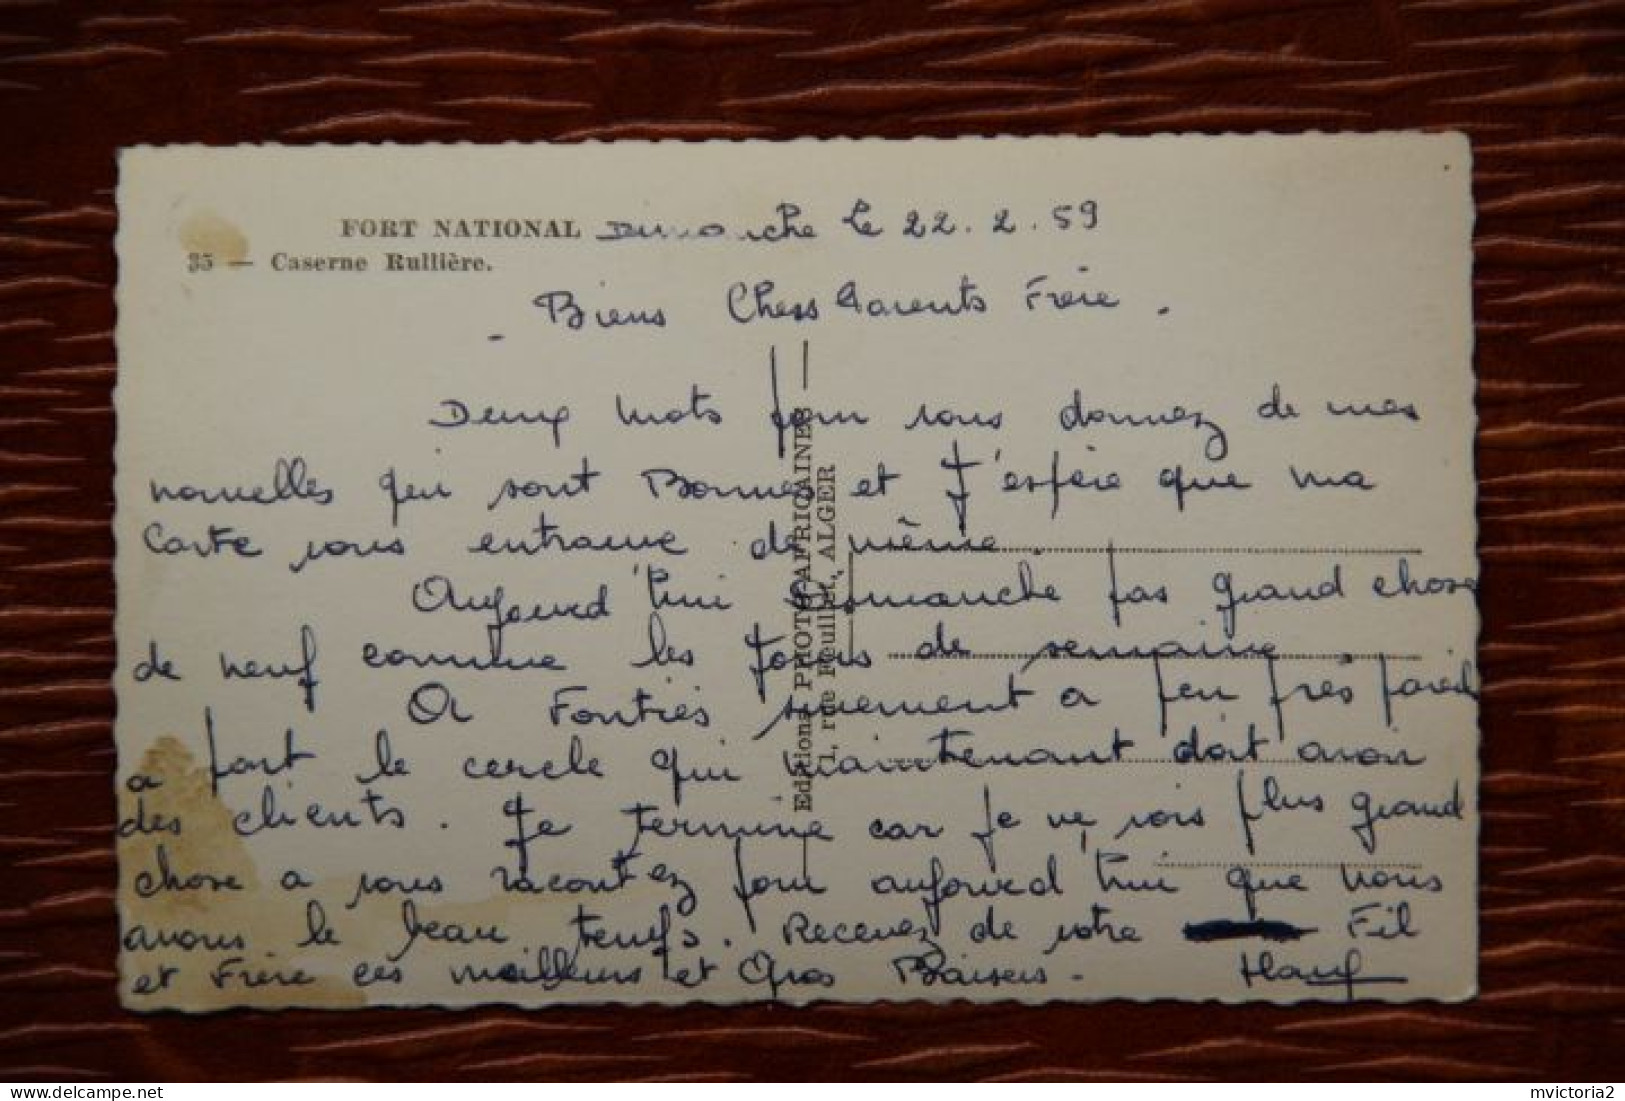 FORT NATIONAL Dimanche le 22.2.59
35 — Caserne Rullière.
- Biens Chers Parents Frère -
Deux mots pour vous donnez de mes
nouvelles qui sont Bonnes et J'espère que ma
Carte vous entrouve de même.
Aujourd'hui Dimanche pas grand chose
de neuf comme les Jours de semaine
A Fontiès surement à peu près pareil
a part le cercle qui maintenant doit avoir
des clients. Je termine car je ne vois plus grand
chose a vous racontez pour aujourd'hui que nous
avons le beau temps. Recevez de votre Fil
et Frère ces meilleurs et Gros Baisers -
Editions PHOTO-AFRICAINES —
rue Feuillet, ALGER
mvictoria2